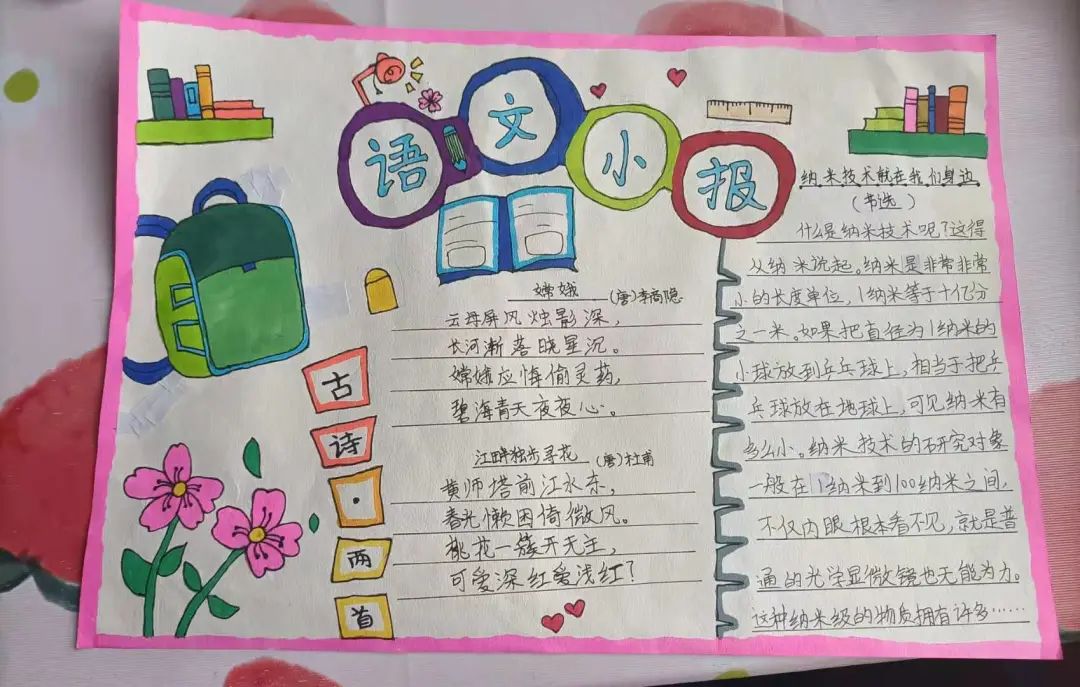 语文小报
古诗·两首
嫦娥 (唐)李商隐
云母屏风烛影深，
长河渐落晓星沉。
嫦娥应悔偷灵药，
碧海青天夜夜心。
江畔独步寻花 (唐)杜甫
黄师塔前江水东，
春光懒困倚微风。
桃花一簇开无主，
可爱深红爱浅红？
纳米技术就在我们身边
（节选）
什么是纳米技术呢？这得
从纳米说起。纳米是非常非常
小的长度单位，1纳米等于十亿分
之一米。如果把直径为1纳米的
小球放到乒乓球上，相当于把乒
乓球放在地球上，可见纳米有
多么小。纳米技术的研究对象
一般在1纳米到100纳米之间，
不仅肉眼根本看不见，就是普
通的光学显微镜也无能为力。
这种纳米级的物质拥有许多……